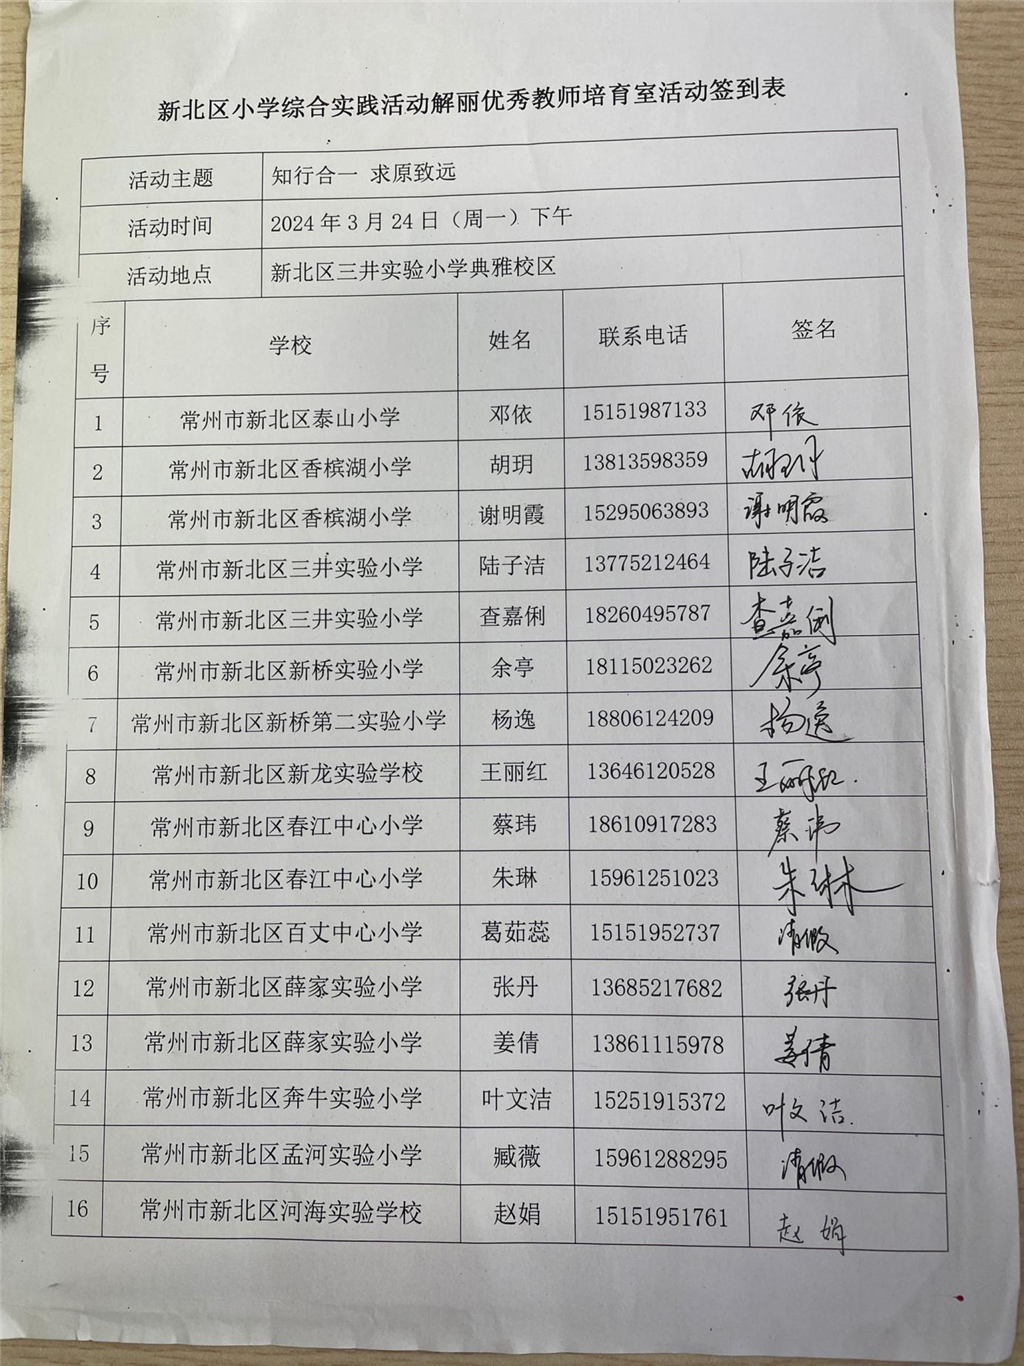 新北区小学综合实践活动解丽优秀教师培育室活动签到表
活动主题 知行合一 求原致远
活动时间 2024年3月24日（周一）下午
活动地点 新北区三井实验小学典雅校区
序号 学校 姓名 联系电话 签名
1 常州市新北区泰山小学 邓依 15151987133 邓依
2 常州市新北区香槟湖小学 胡玥 13813598359 胡玥
3 常州市新北区香槟湖小学 谢明霞 15295063893 谢明霞
4 常州市新北区三井实验小学 陆子洁 13775212464 陆子洁
5 常州市新北区三井实验小学 查嘉俐 18260495787 查嘉俐
6 常州市新北区新桥实验小学 余亭 18115023262 余亭
7 常州市新北区新桥第二实验小学 杨逸 18806124209 杨逸
8 常州市新北区新龙实验学校 王丽红 13646120528 王丽红.
9 常州市新北区春江中心小学 蔡玮 18610917283 蔡玮
10 常州市新北区春江中心小学 朱琳 15961251023 朱琳
11 常州市新北区百丈中心小学 葛茹蕊 15151952737 请假
12 常州市新北区薛家实验小学 张丹 13685217682 张丹
13 常州市新北区薛家实验小学 姜倩 13861115978 姜倩
14 常州市新北区奔牛实验小学 叶文洁 15251915372 叶文洁.
15 常州市新北区孟河实验小学 臧薇 15961288295 请假
16 常州市新北区河海实验学校 赵娟 15151951761 赵娟